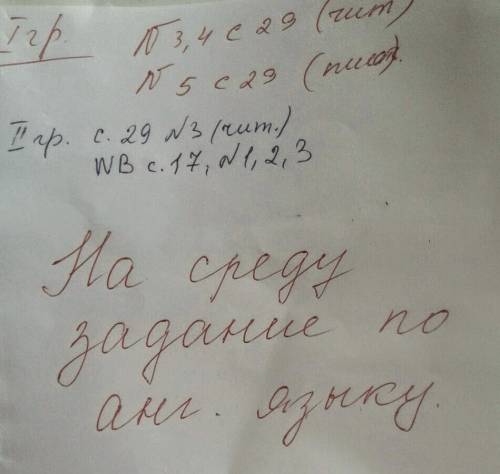 I гр. N 3,4 с 29 (чит)
N 5 с 29 (письм).
II гр. с. 29 N3 (чит.)
WB с. 17, N1, 2, 3
На среду
задание по
анг. языку.